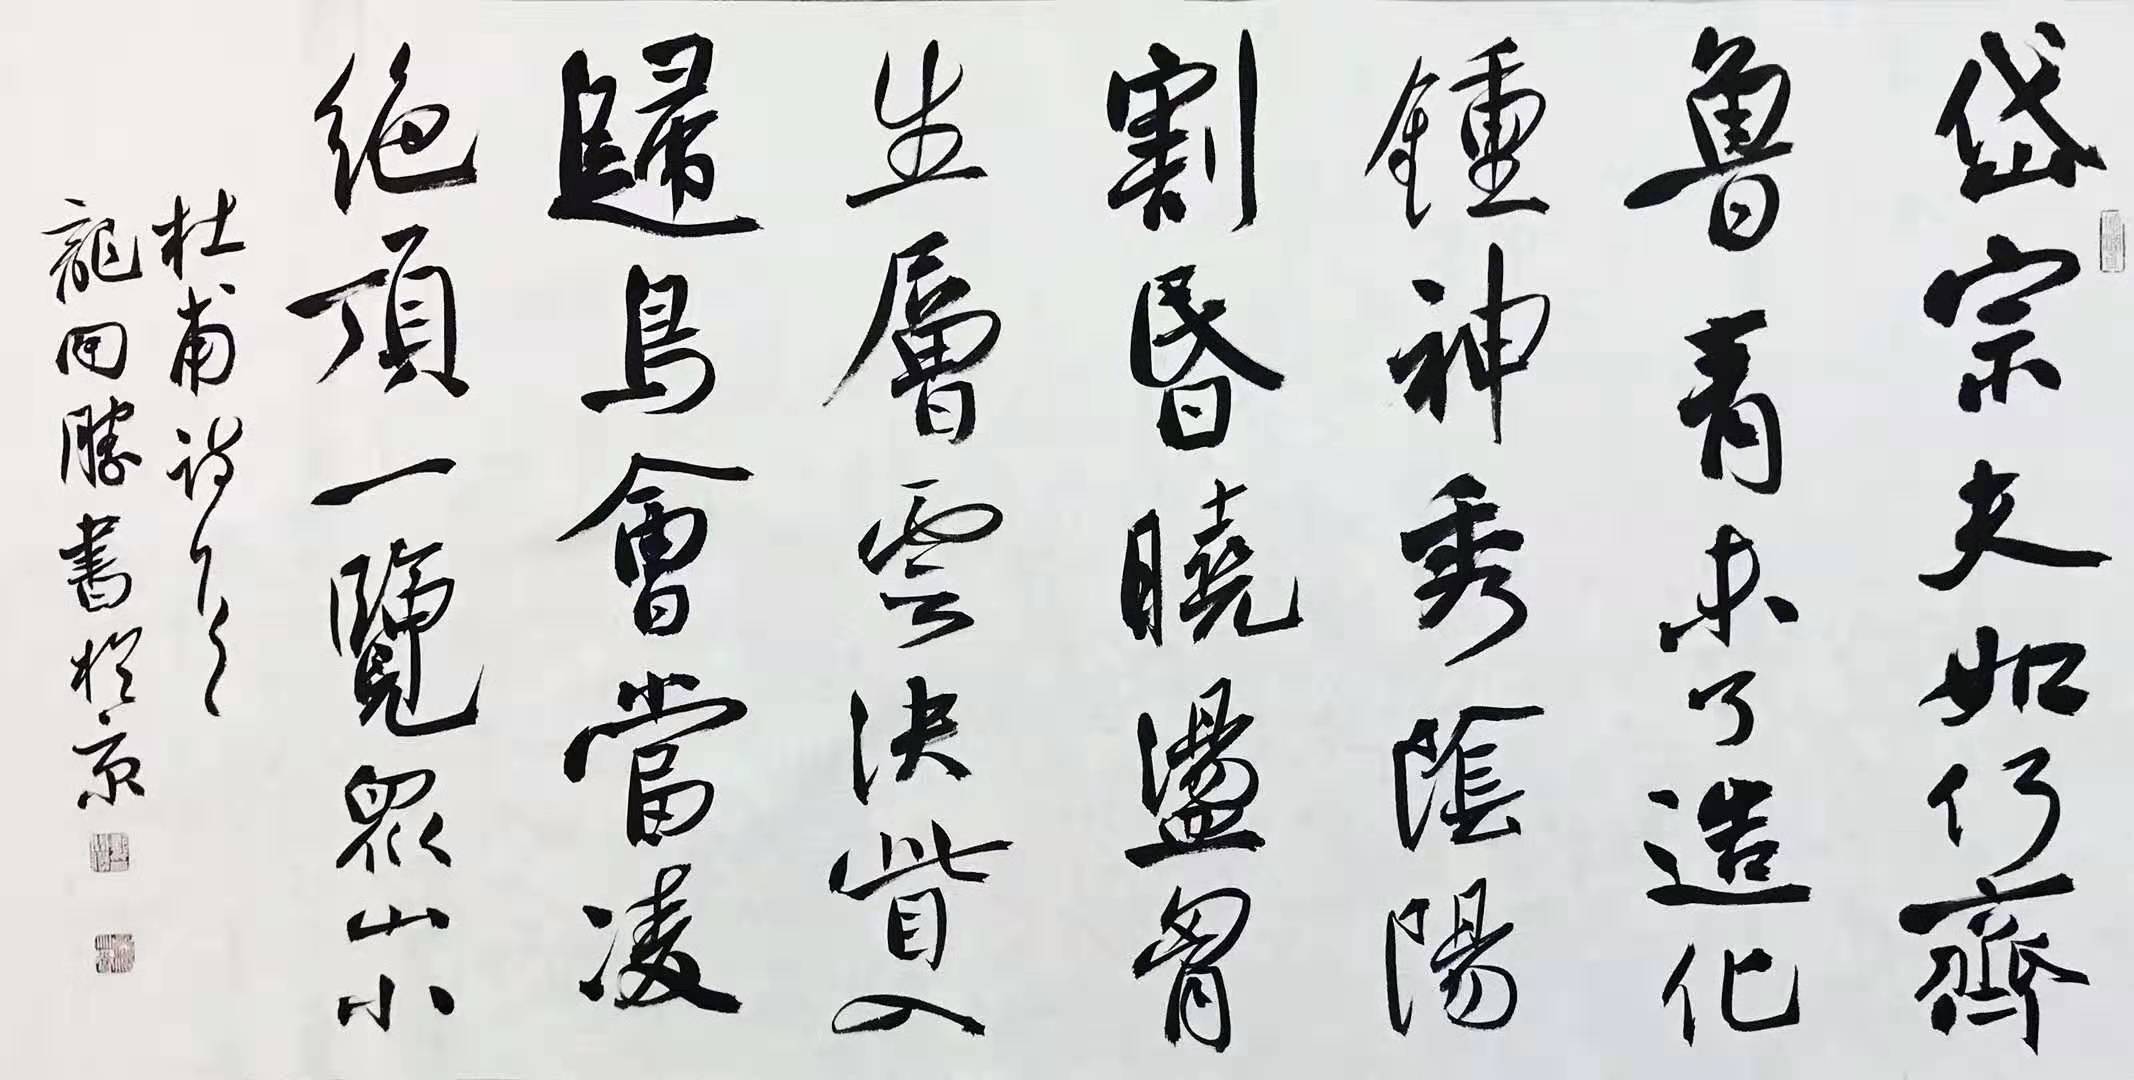 岱宗夫如何齊
魯青未了造化
鍾神秀陰陽
割昏曉盪胷
生層雲決眥入
歸鳥會當凌
絕頂一覽眾山小
杜甫詩
龍同勝書於京